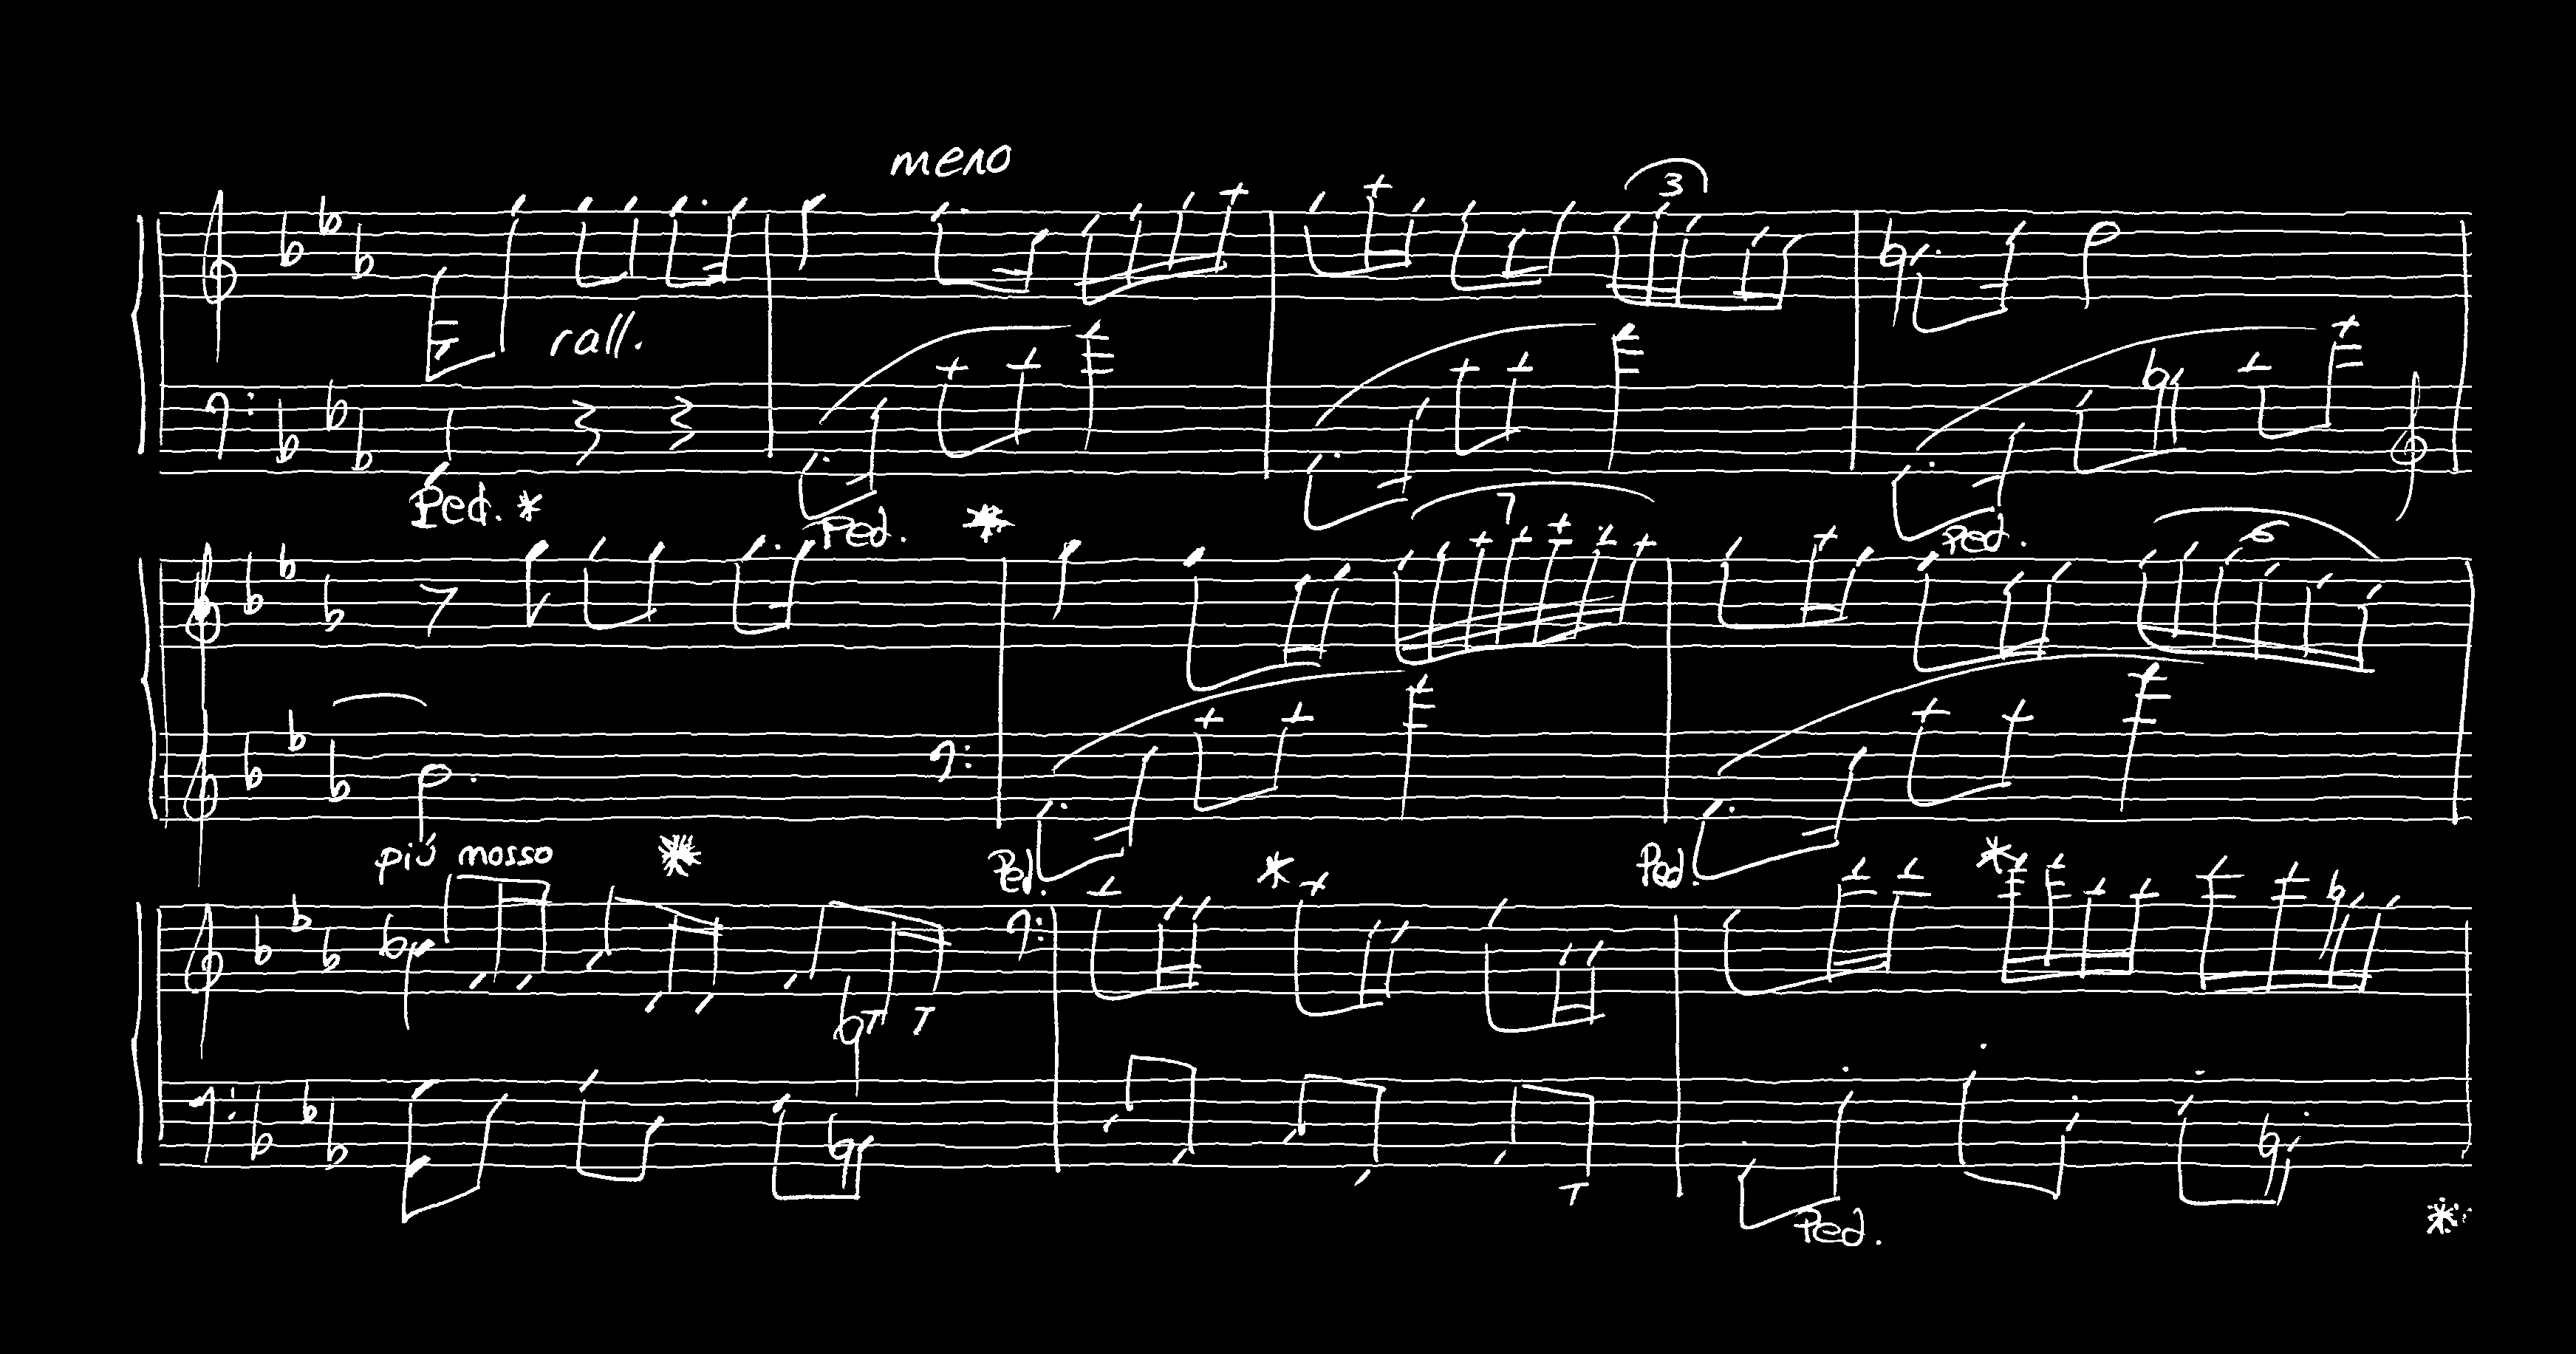 meno
3
rall.
Ped. *
7
Ped. *
Ped.
6
più mosso *
Ped. *
Ped. *
Ped. *